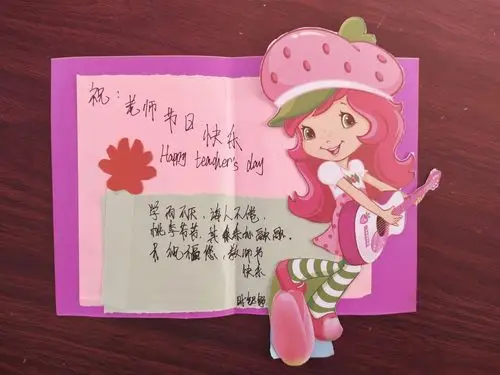 祝：老师节日
快乐
Happy teacher's day
学而不厌，诲人不倦，
桃李芬芳，其乐融融。
福 教师节
快乐